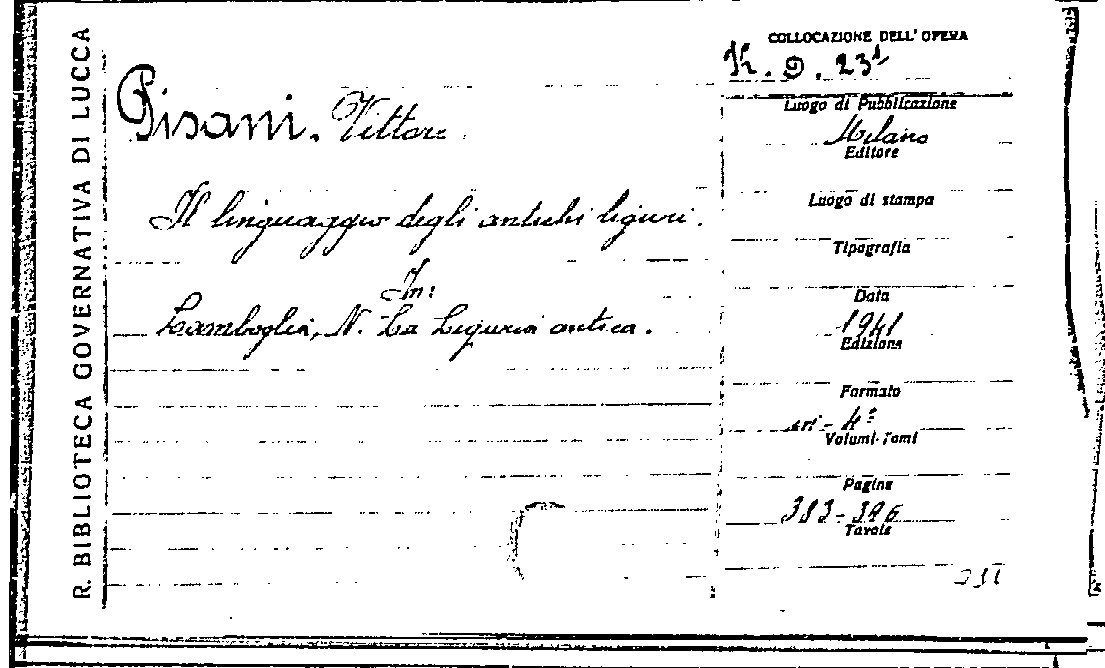 R. BIBLIOTECA GOVERNATIVA DI LUCCA
Pisani. Vittore
Il linguaggio degli antichi liguri.
In:
Lamboglia, N. La Liguria antica.
COLLOCAZIONE DELL'OPERA
Luogo di Pubblicazione
Milano
Editore
Luogo di stampa
Tipografia
Data
1941
Edizione
Formato
in-4º
Volumi-Tomi
Pagine
383-396
Tavole